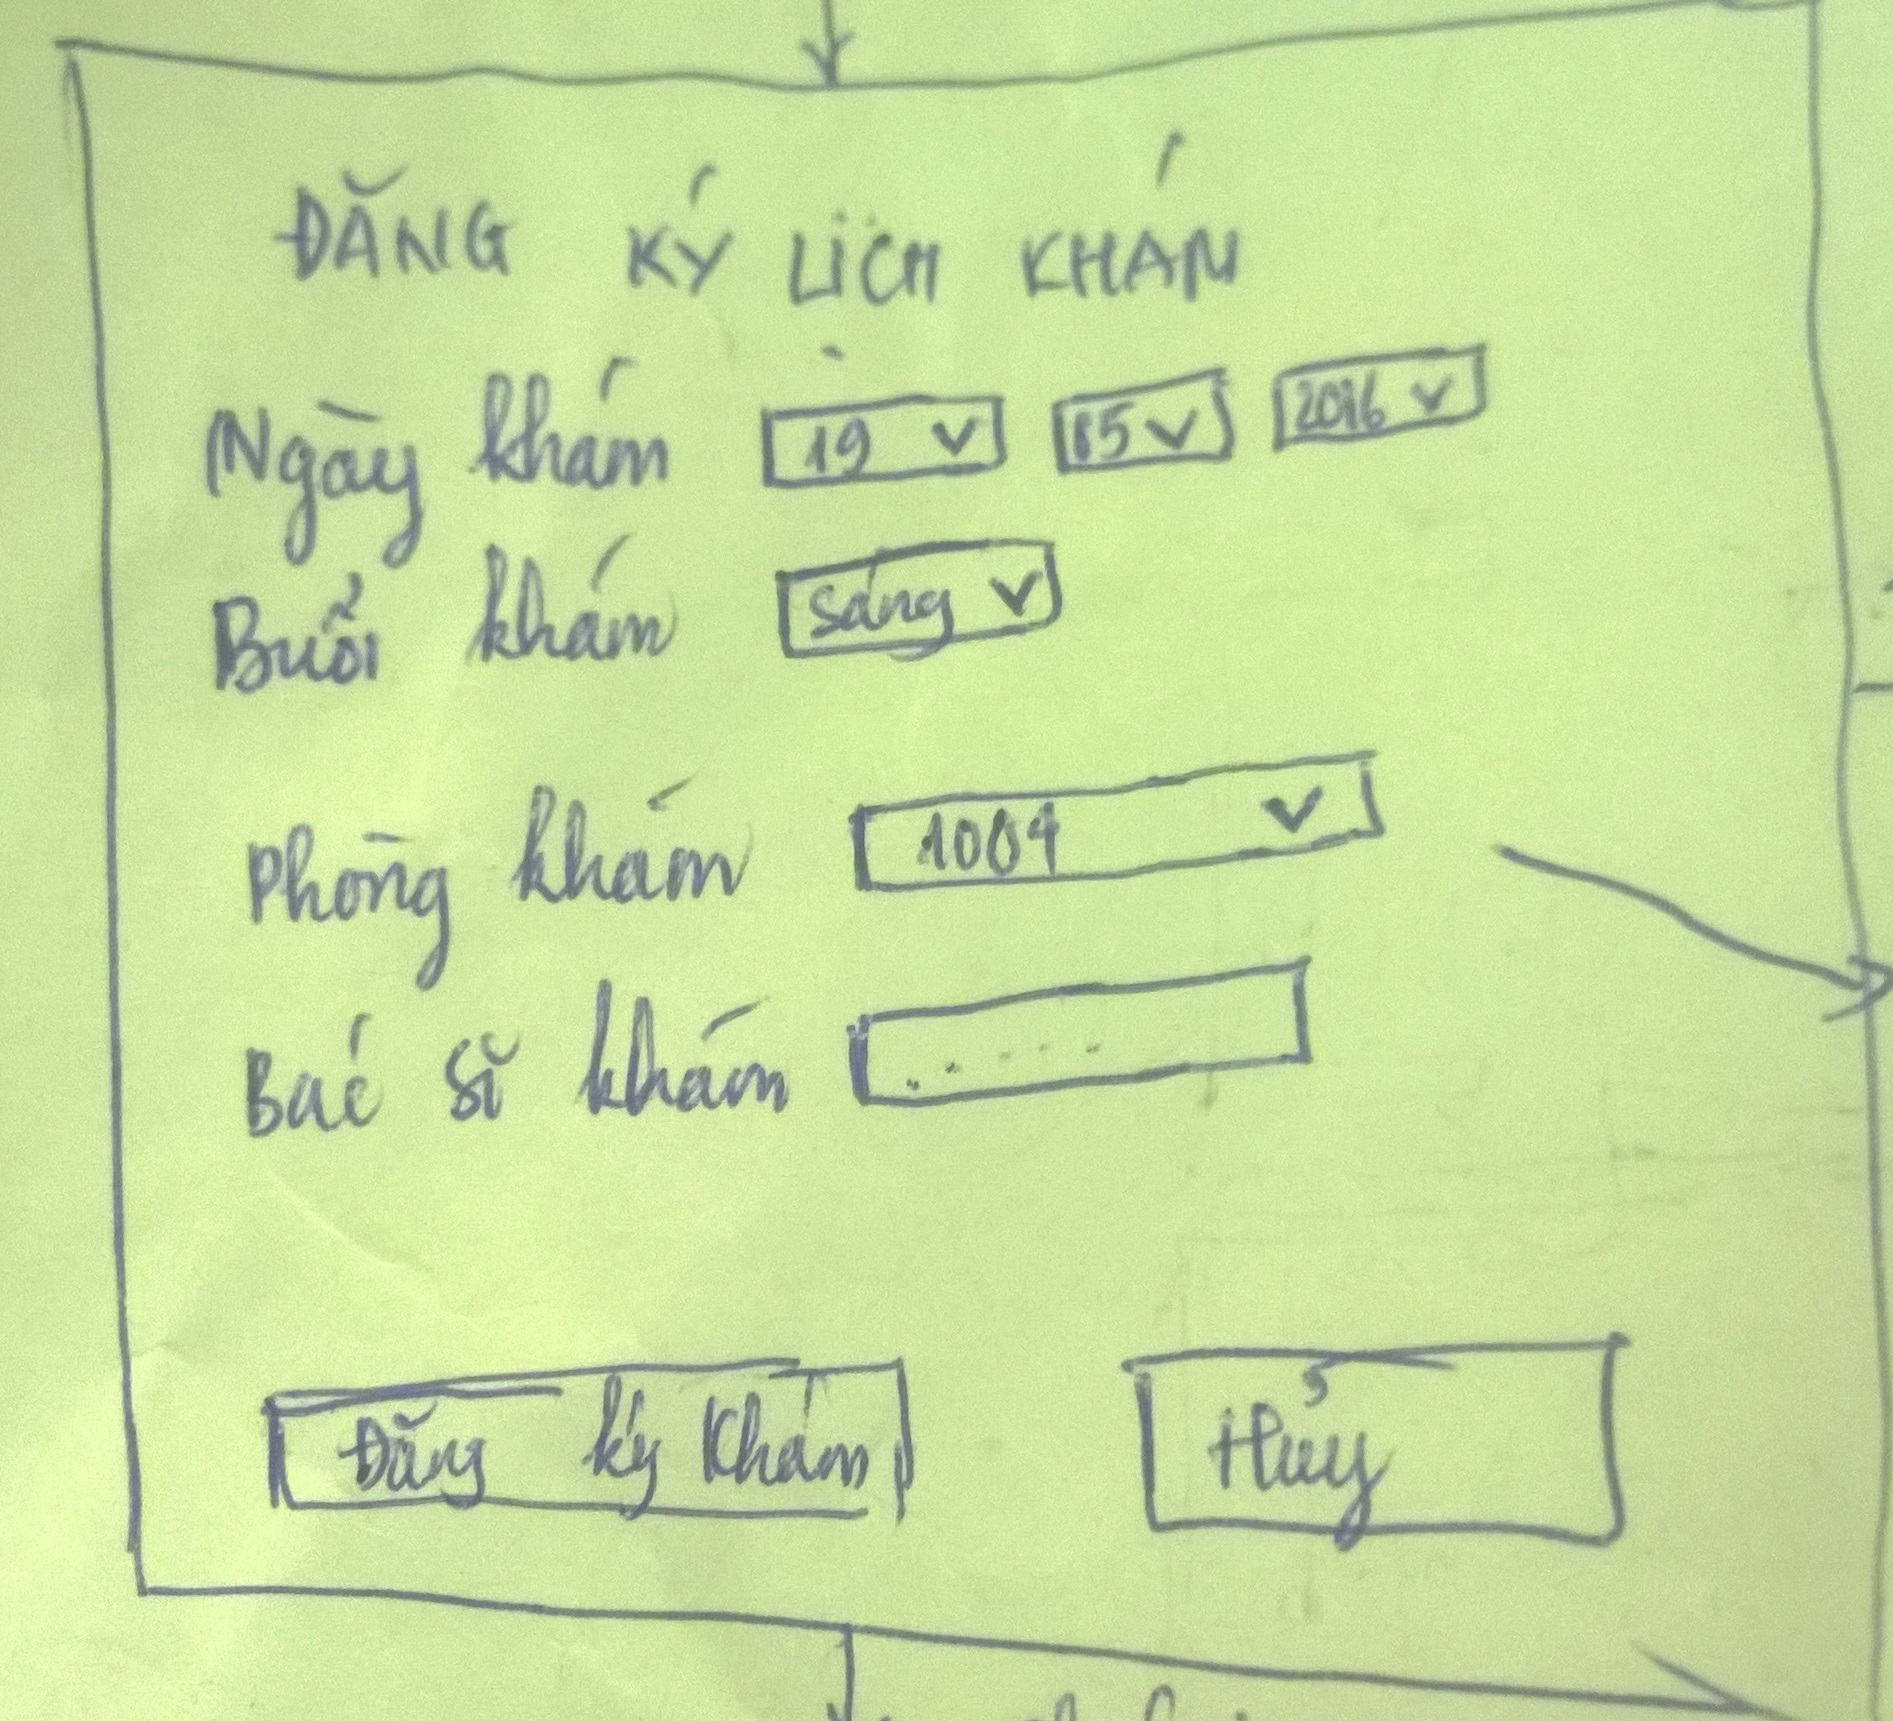 ĐĂNG KÝ LỊCH KHÁM
Ngày khám 19 v 05 v 2016 v
Buổi khám Sáng v
Phòng khám 1004 v
Bác sĩ khám .....
Đăng ký Khám Hủy